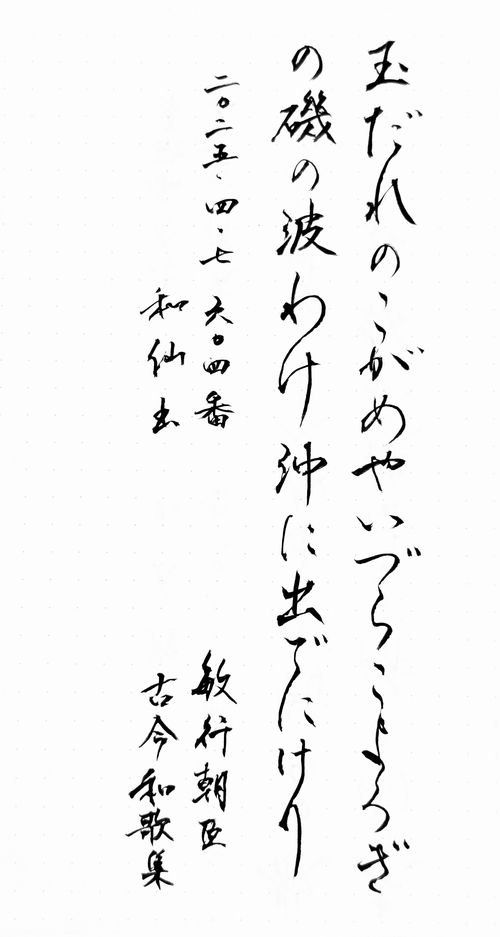 玉だれのこがめやいづらこよろぎ
の磯の波わけ沖に出でにけり
二〇二五、四、七 六〇四番
和仙书
敏行朝臣
古今和歌集